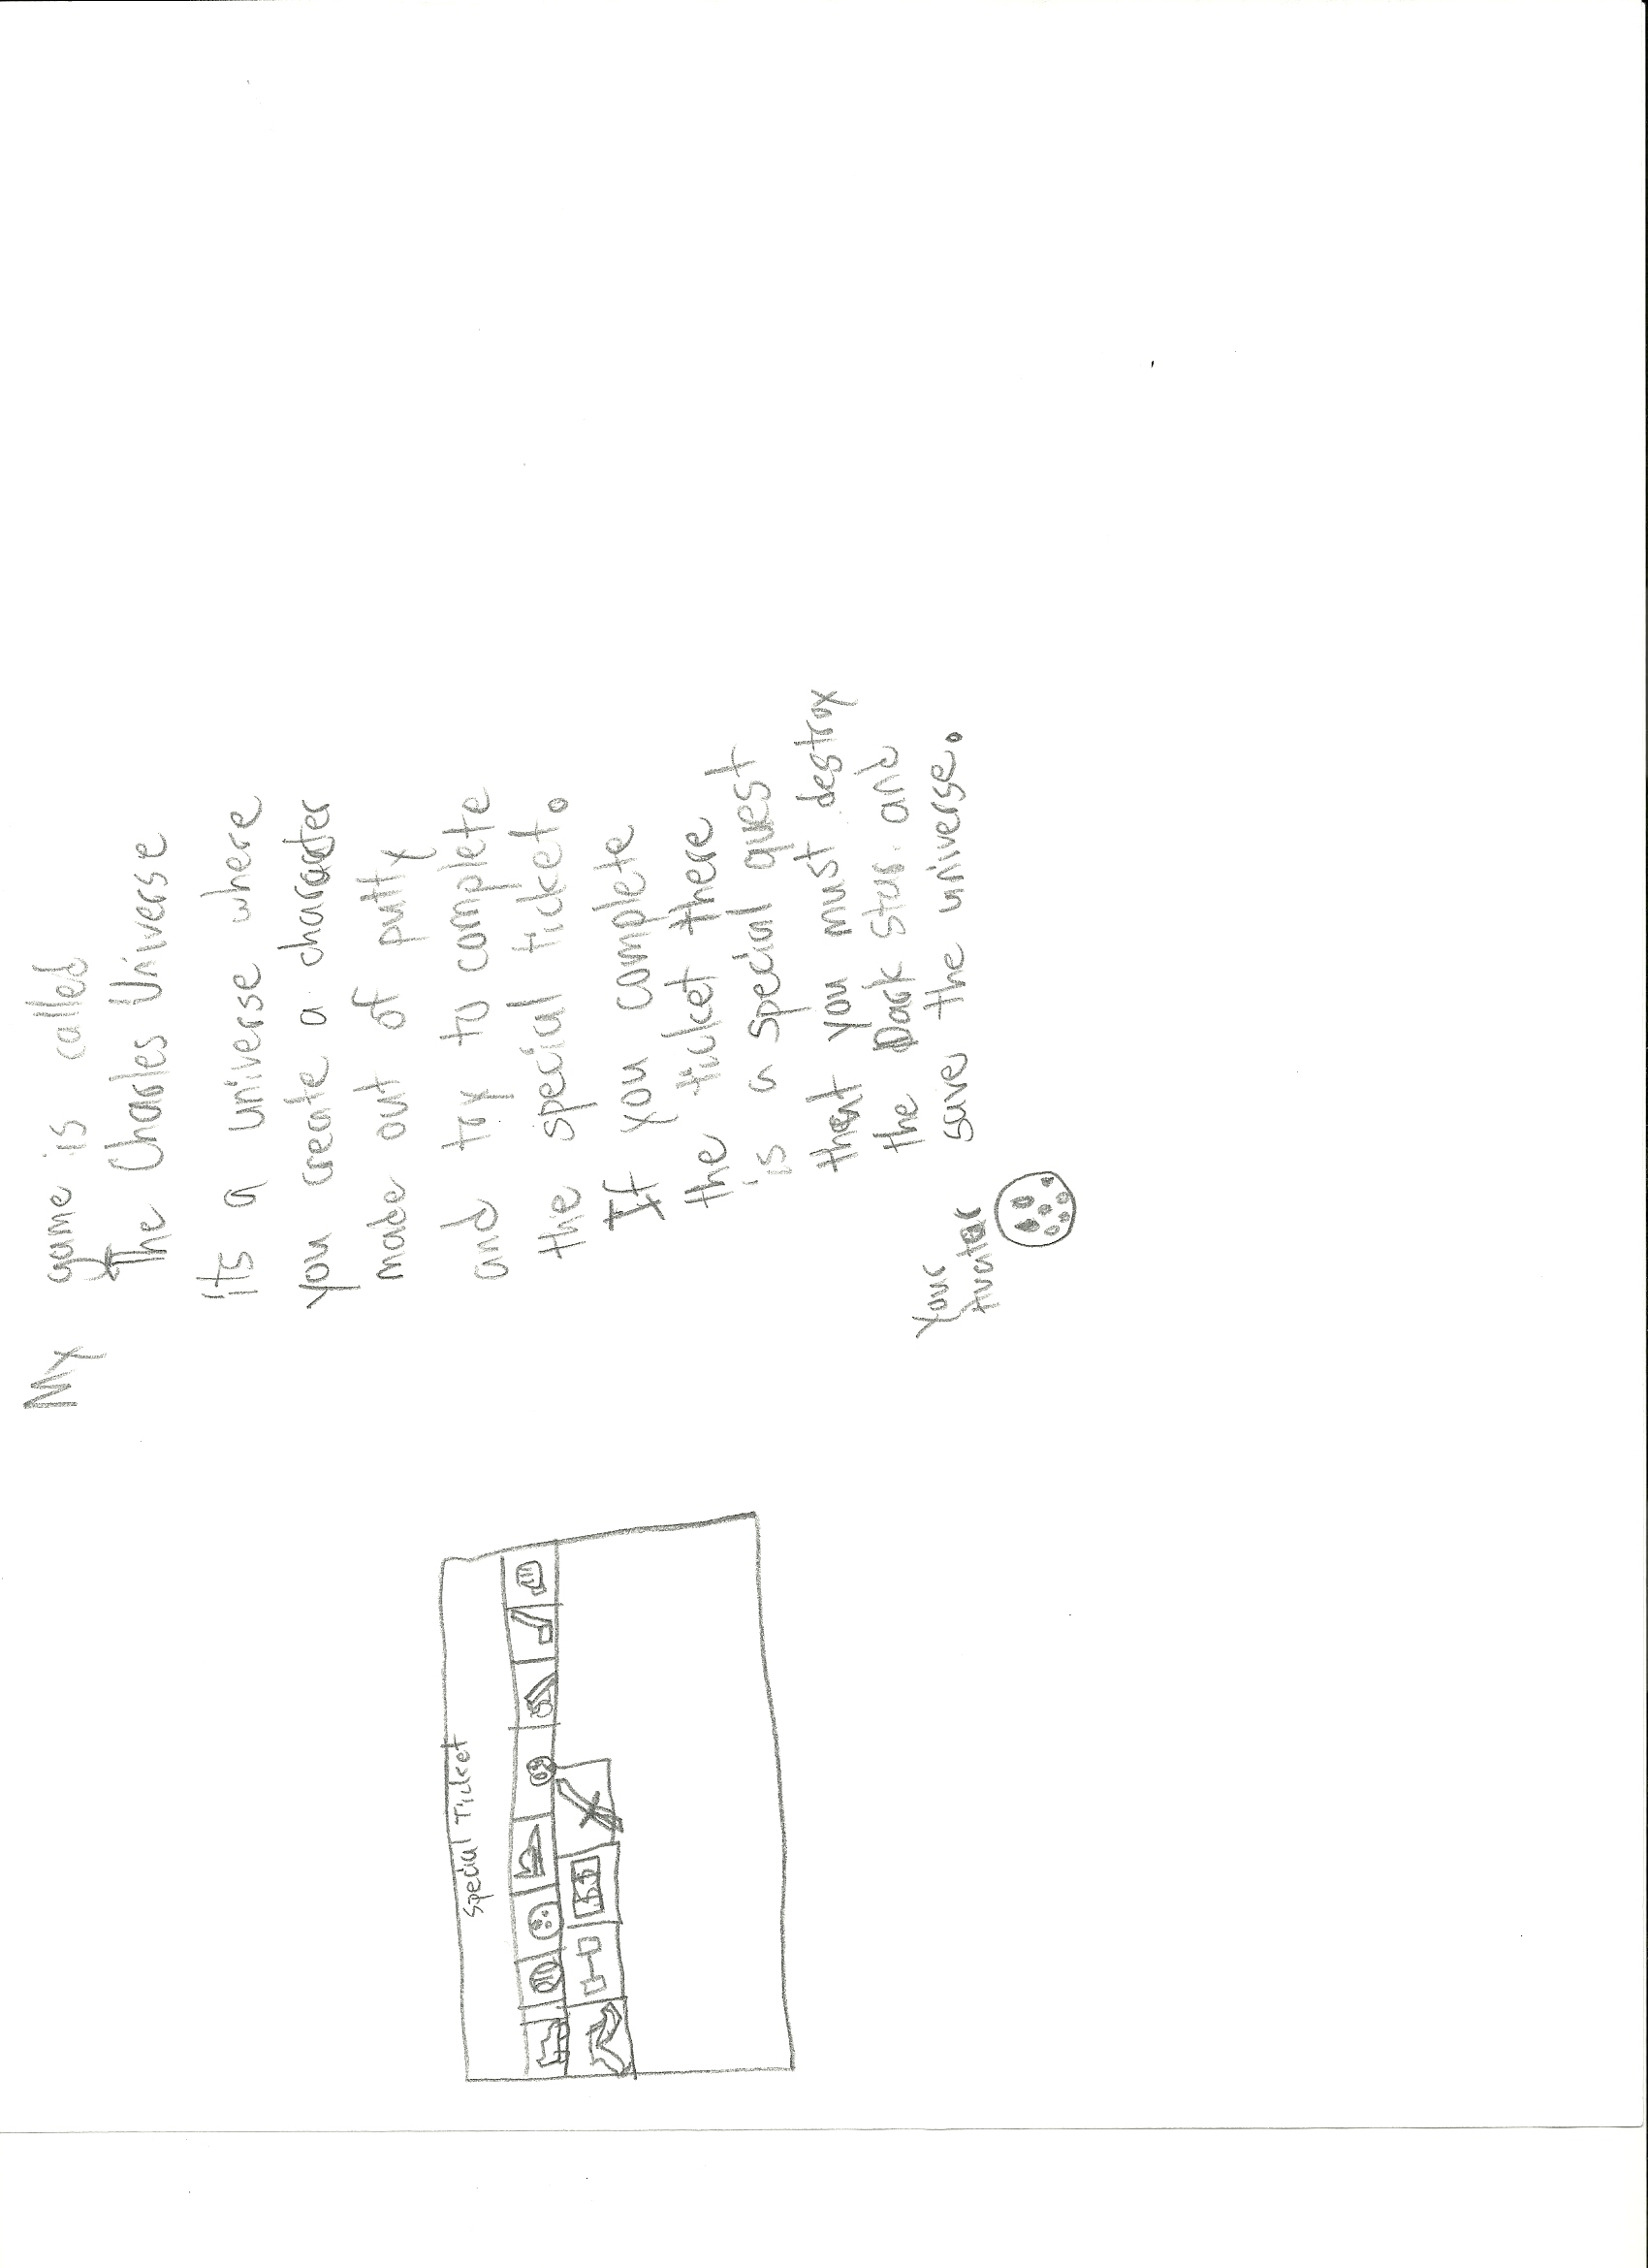 My game is called
The Charles Universe
its a universe where
you create a character
made out of putty
and try to complete
the special ticket.
If you complete
the ticket there
is a special quest
that you must destroy
the Dark Star. and
save the universe.
Your
Avatar
Special Ticket